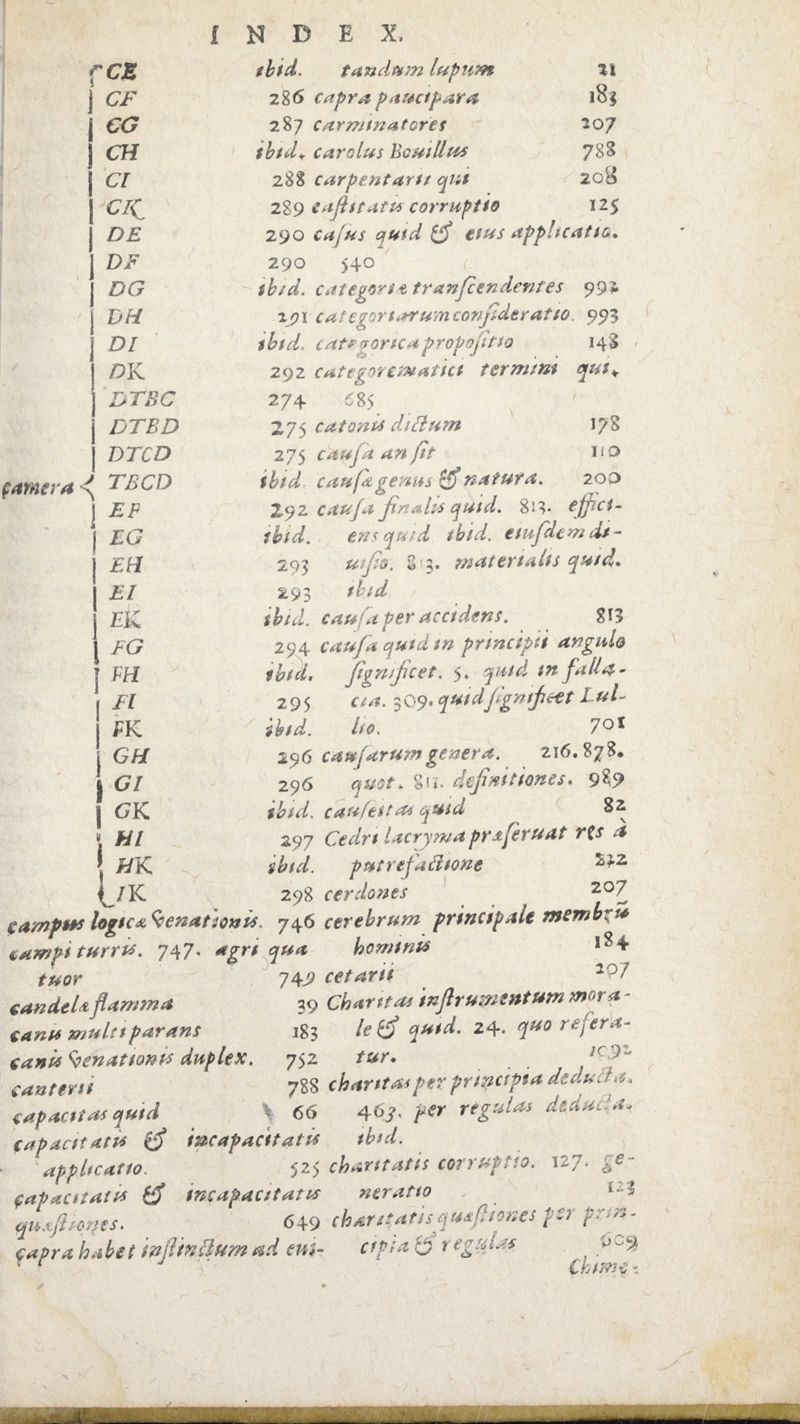 INDEX.
CE ibid.
CF 286
CG 287
CH ibid.
CI 288
CK 289
DE 290
DF 290
DG ibid.
DH 291
DI ibid.
DK 292
DTBC 274
DTBD 275
DTCD 275
camera { TBCD ibid.
EF 292
EG ibid.
EH 293
EI 293
EK ibid.
FG 294
FH ibid.
FI 295
FK ibid.
GH 296
GI 296
GK ibid.
HI 297
HK ibid.
IK 298
campus logicæ venationis. 746
campi turris. 747. agri qua
tuor 749
candelæ flamma 39
canis multiparans 183
canis venationis duplex. 752
canterii 788
capacitas quid 66
capacitatis & incapacitatis
applicatio. 525
capacitatis & incapacitatis
quæstiones. 649
capra habet instinctum ad eui-
tandum lupum 21
capra paucipara 183
carminatores 207
carolus Bouillus 788
carpentarii qui 208
castitatis corruptio 125
casus quid & eius applicatio.
540
categoriæ transcendentes 992
categoriarum consideratio. 993
categorica propositio 148
categorematici termini qui.
685
catonis dictum 178
causa an sit 110
causæ genus & natura. 200
causa finalis quid. 813. effici-
ens quid ibid. eiusdem di-
uisio. 813. materialis quid.
ibid
causa per accidens. 813
causa quid in principii angulo
significet. 5. quid in falla-
cia. 309. quid significet Lul-
lio. 701
causarum genera. 216. 878.
quot. 811. definitiones. 989
causeitas quid 82
Cedri lacryma præseruat res à
putrefactione 222
cerdones 207
cerebrum principale membrũ
hominis 184
cetarii 207
Charitas instrumentum mora-
le & quid. 24. quo refera-
tur. 1092
charitas per principia deducta.
463. per regulas deducta.
ibid.
charitatis corruptio. 127. ge-
neratio 123
charitatis quæstiones per prin-
cipia & regulas 609
Chime-